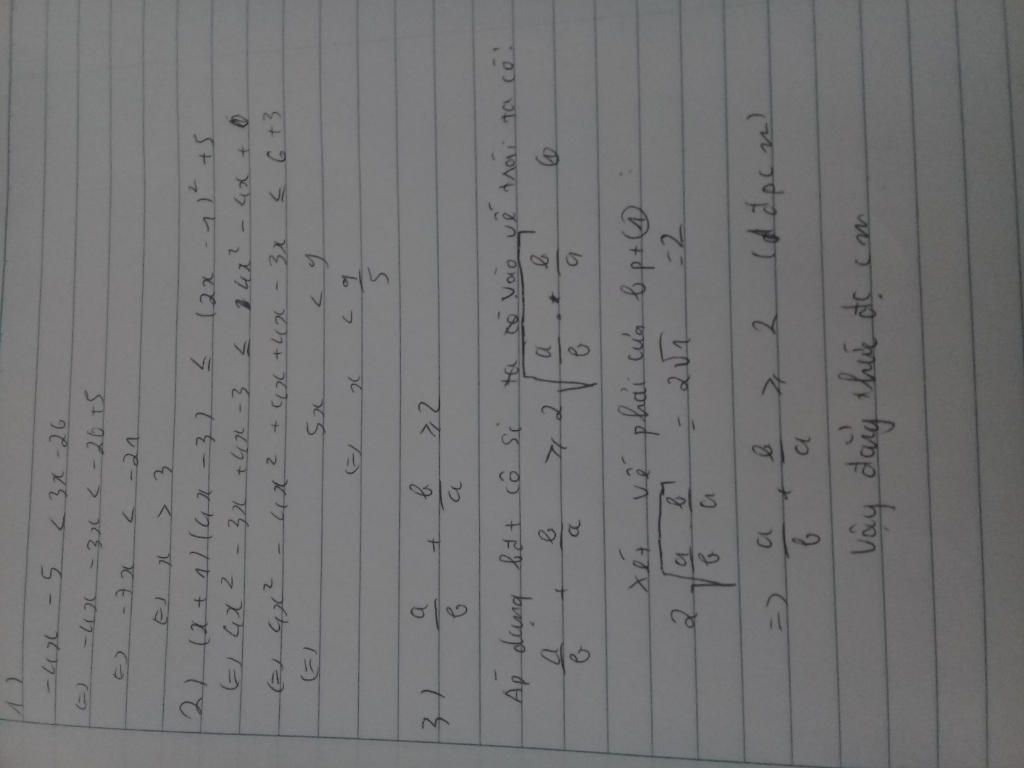 1)
-4x - 5 < 3x - 26
(=) -4x - 3x < -26 + 5
(=) -7x < -21
(=) x > 3
2) (x + 1)(4x - 3) ≤ (2x - 1)² + 5
(=) 4x² - 3x + 4x - 3 ≤ 4x² - 4x + 6
(=) 4x² - 4x² + 4x + 4x - 3x ≤ 6 + 3
(=) 5x < 9
(=) x < 9/5
3) a/b + b/a ≥ 2
Áp dụng bđt cô si ta có vào vế trái ta có:
a/b + b/a ≥ 2√(a/b . b/a) (1)
Xét vế phải của bpt (1) :
2√(a/b b/a) = 2√1 = 2
=) a/b + b/a ≥ 2 (đpcm)
Vậy đẳng thức đc cm